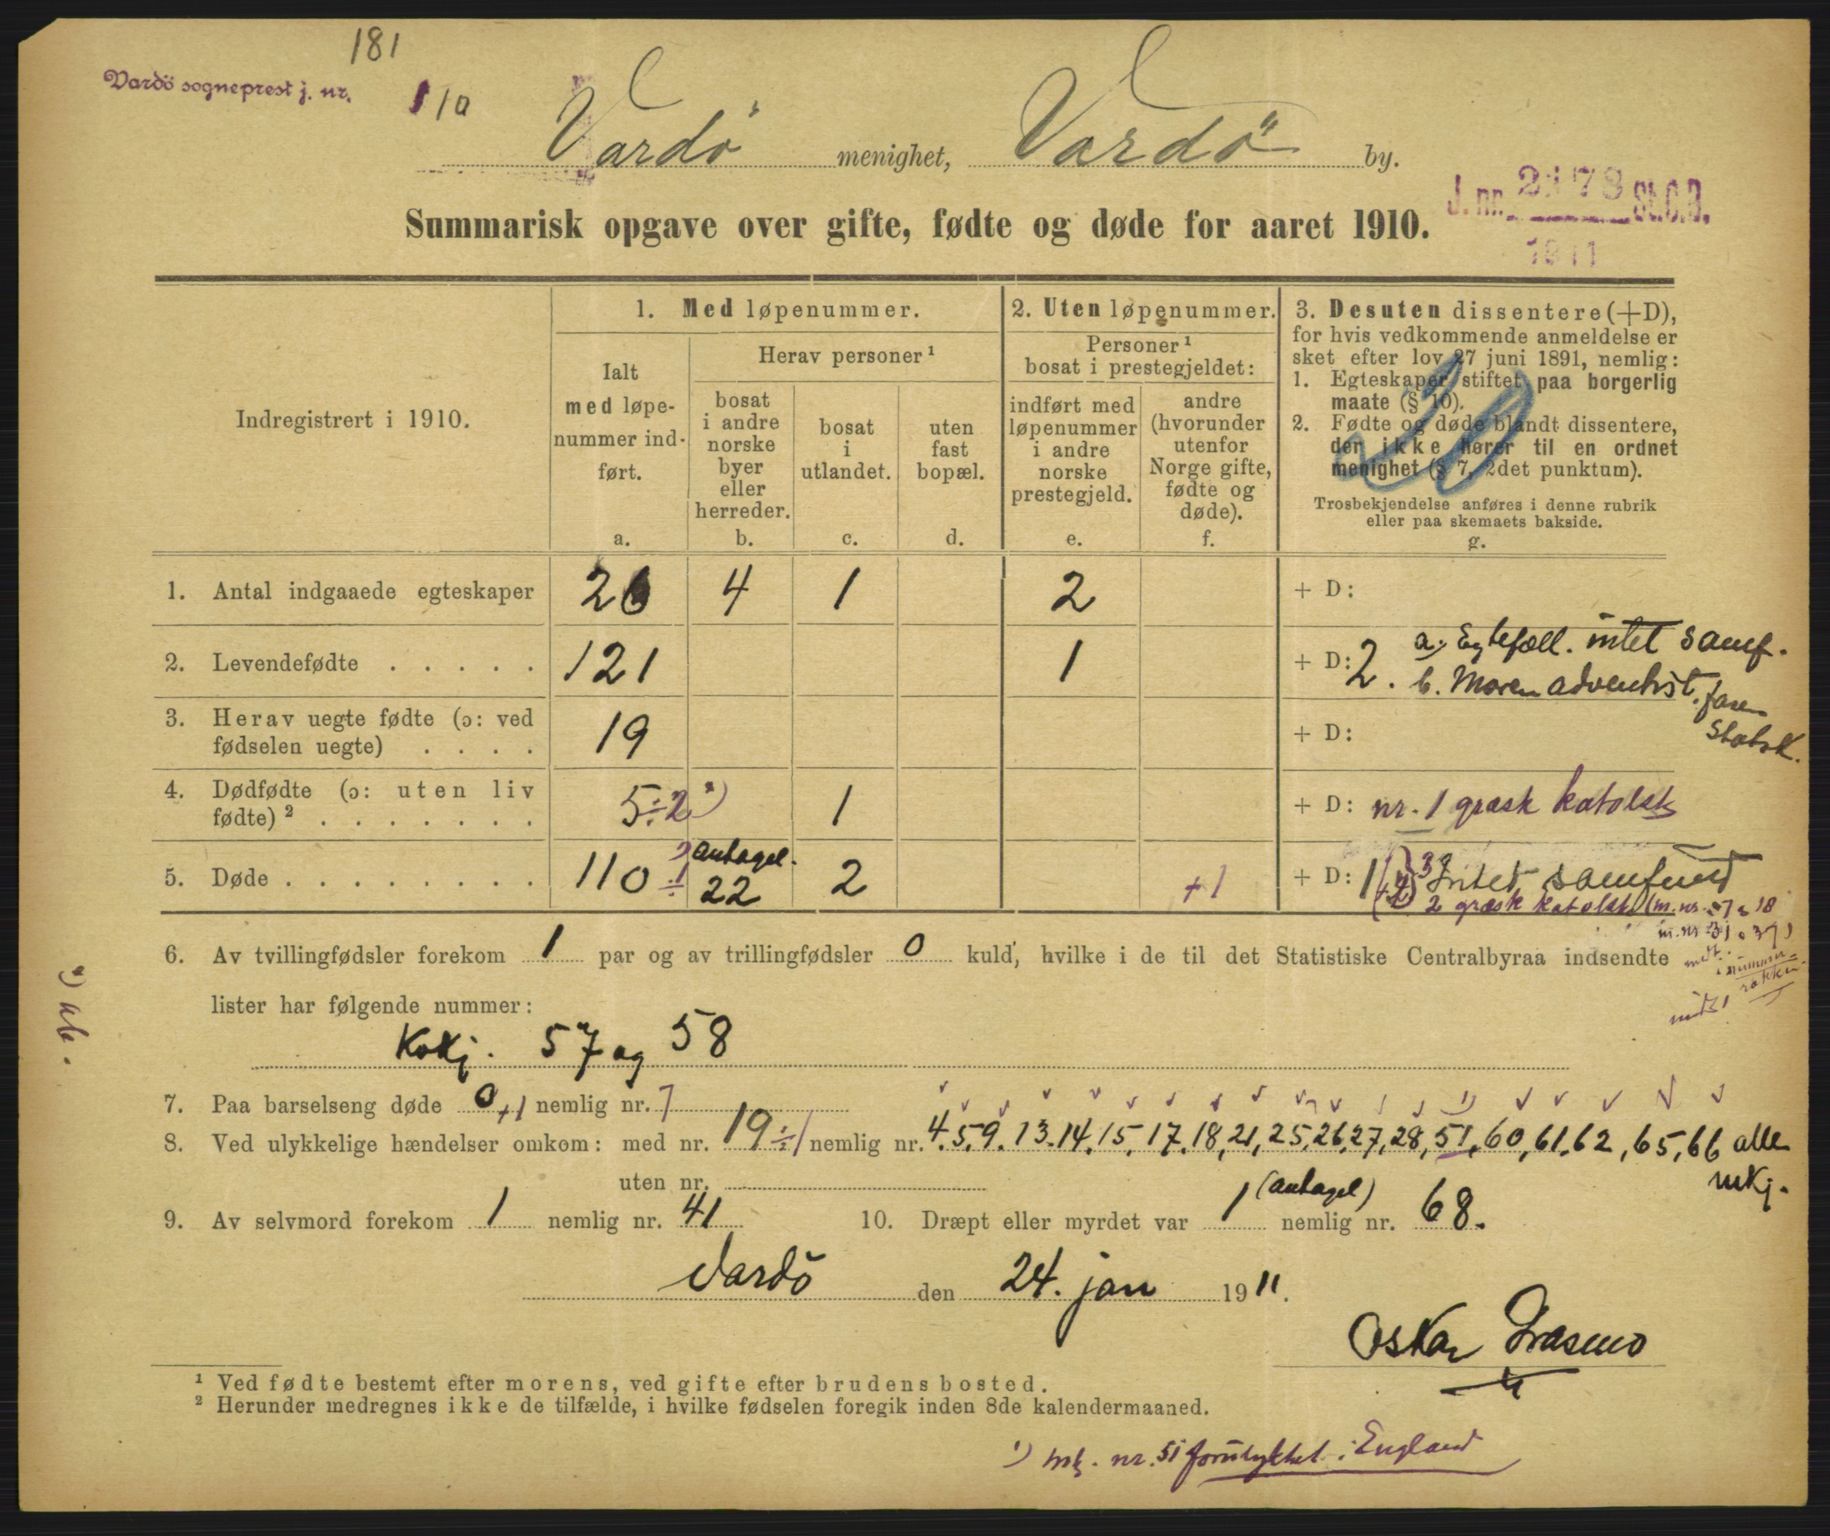 181
Vardö sogneprest j. nr. 1/10
Vardö menighet, Vardö by.
J. nr. 2173 St.C.B.
1911
Summarisk opgave over gifte, fødte og døde for aaret 1910.
Indregistrert i 1910.
1. Med løpenummer.
Ialt
med løpe-
nummer ind-
ført.
a.
Herav personer¹
bosat
i andre
norske
byer
eller
herreder.
b.
bosat
i
utlandet.
c.
uten
fast
bopæl.
d.
2. Uten løpenummer.
Personer¹
bosat i prestegjeldet:
indført med
løpenummer
i andre
norske
prestegjeld.
e.
andre
(hvorunder
utenfor
Norge gifte,
fødte og
døde).
f.
3. Desuten dissentere (+D),
for hvis vedkommende anmeldelse er
sket efter lov 27 juni 1891, nemlig:
1. Egteskaper stiftet paa borgerlig
maate (§ 10).
2. Fødte og døde blandt dissentere,
der ikke hører til en ordnet
menighet (§ 7, 2det punktum).
Trosbekjendelse anføres i denne rubrik
eller paa skemaets bakside.
g.
1. Antal indgaaede egteskaper 26 4 1 2 + D:
2. Levendefødte . . . . . 121 1 + D: 2. a. Egtefæll. intet samf.
b. Moren adventist. faren
Statsk.
3. Herav uegte fødte (ɔ: ved
fødselen uegte) . . . . 19 + D:
4. Dødfødte (ɔ: uten liv
fødte)² . . . . . . . 5 ÷2 ") 1 + D: nr. 1 græsk katolsk
5. Døde . . . . . . . . 110 ÷1 antagel. 22 2 +1 + D: 1 Intet samfund
2 græsk katolsk (m.nr. 7 & 18
6. Av tvillingfødsler forekom 1 par og av trillingfødsler 0 kuld, hvilke i de til det Statistiske Centralbyraa indsendte
lister har følgende nummer:
Kvkj. 57 og 58
") ub.
7. Paa barselseng døde 0 +1 nemlig nr. 7
8. Ved ulykkelige hændelser omkom: med nr. 19 ÷1 nemlig nr. 4, 5, 9, 13, 14, 15, 17, 18, 21, 25, 26, 27, 28, 51, 60, 61, 62, 65, 66 alle
mkj.
uten nr.
9. Av selvmord forekom 1 nemlig nr. 41 10. Dræpt eller myrdet var 1 (antagel) nemlig nr. 68.
Vardö den 24. jan 1911.
Oskar
¹ Ved fødte bestemt efter morens, ved gifte efter brudens bosted.
² Herunder medregnes ikke de tilfælde, i hvilke fødselen foregik inden 8de kalendermaaned.
¹) mk. nr. 51 forulykket i England